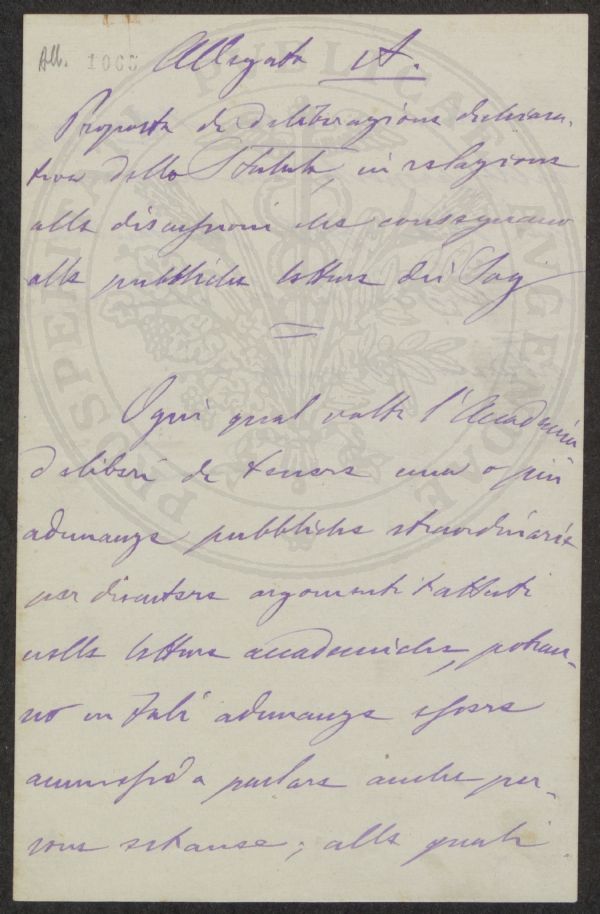 All. 1065
Allegato A.
Proposta di deliberazione dichiara-
tiva dello Statuto, in relazione
alle discussioni che conseguano
alle pubbliche letture dei Soci
Ogni qual volta l'Accademia
deliberi di tenere una o più
adunanze pubbliche straordinarie
per discutere argomenti trattati
nelle letture accademiche, potran-
no in tali adunanze essere
ammesse a parlare anche per-
sone estranee; alle quali
PROSPERITATI PUBLICAE AVGENDAE